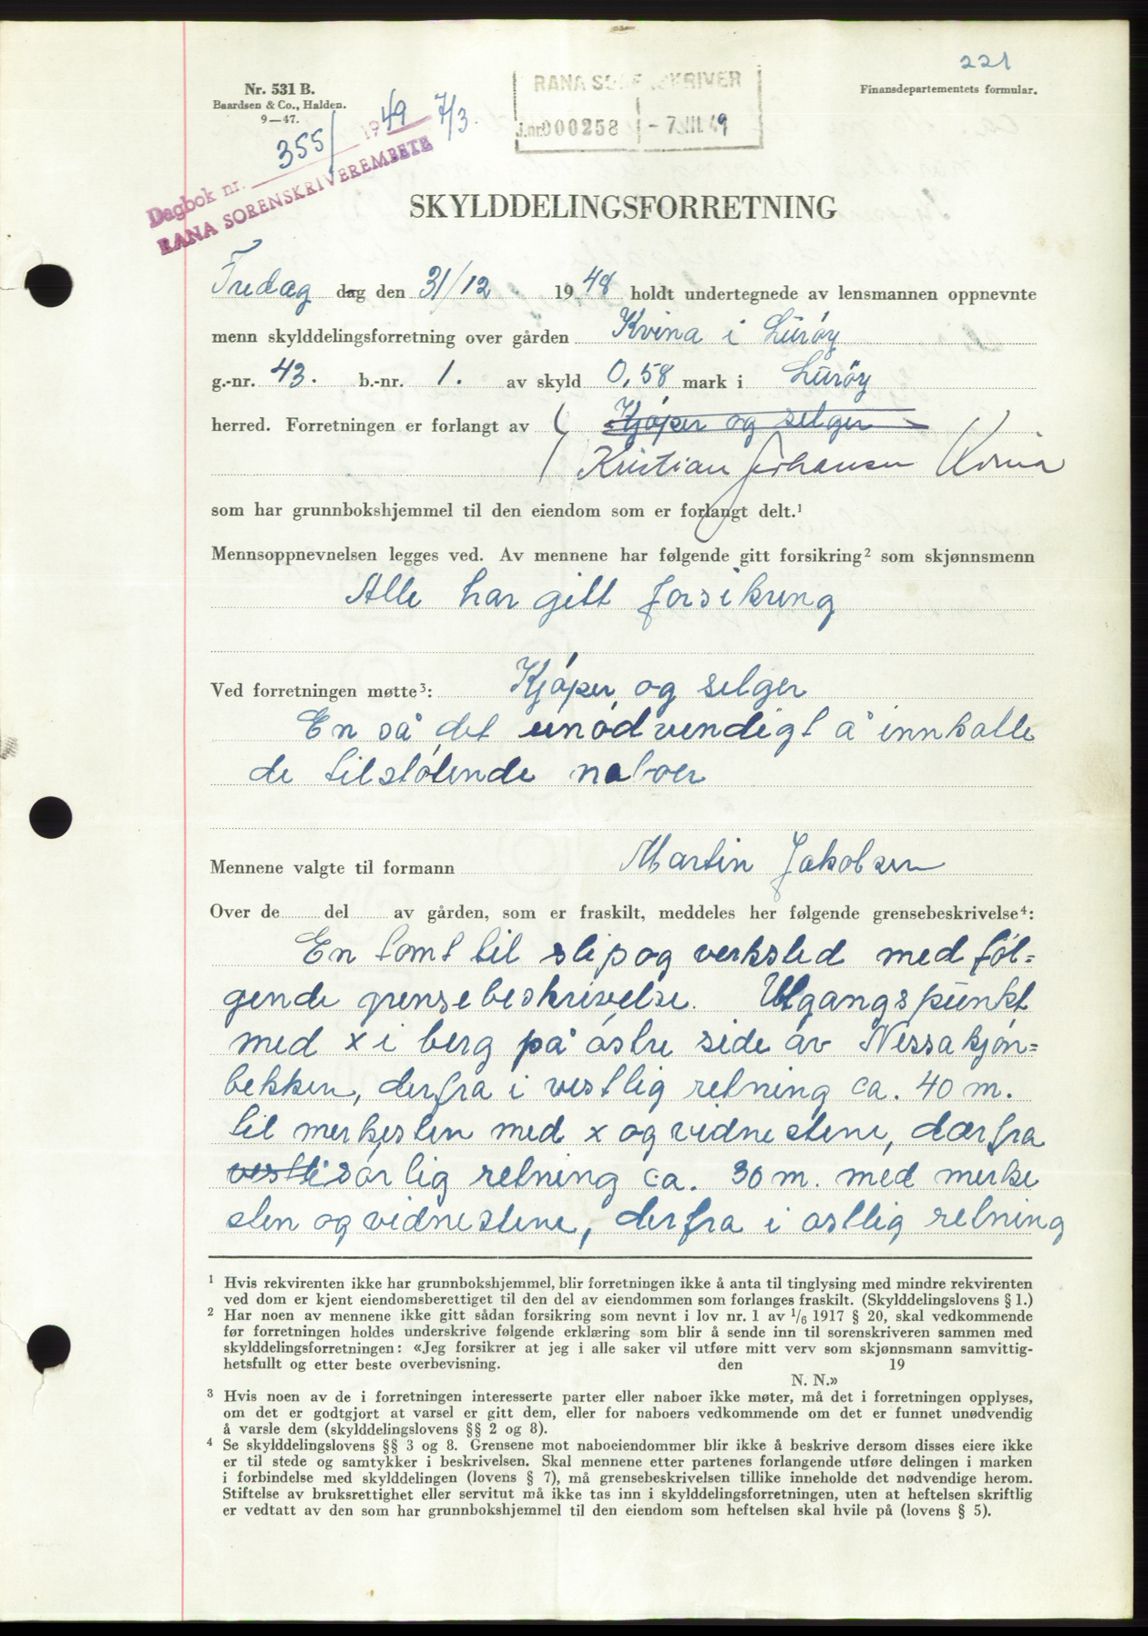 221
Nr. 531 B.
Baardsen & Co., Halden.
9—47.
Finansdepartementets formular.
RANA SORENSKRIVER
J.nr. 000258 - 7.III.49
Dagbok nr. 355/ 1949 7/3.
RANA SORENSKRIVEREMBETE
SKYLDDELINGSFORRETNING
Fredag dag den 31/12 1948 holdt undertegnede av lensmannen oppnevnte
menn skylddelingsforretning over gården Kvina i Luröy
g.-nr. 43. b.-nr. 1. av skyld 0,58 mark i Luröy
herred. Forretningen er forlangt av Kjóper og selger
Kristian Johansen Kvina
som har grunnbokshjemmel til den eiendom som er forlangt delt.¹
Mennsoppnevnelsen legges ved. Av mennene har følgende gitt forsikring² som skjønnsmenn
Alle har gitt forsikring
Ved forretningen møtte³: Kjóper og selger
En så det unódvendigt å innkalle
de tilstótende naboer
Mennene valgte til formann Martin Jakobsen
Over de del av gården, som er fraskilt, meddeles her følgende grensebeskrivelse⁴:
En tomt til slip og verksted med föl=
gende grensebeskrivelse. Utgangspunkt
med x i berg på óstre side av Nessakjön=
bekken, derfra i vestlig retning ca. 40 m.
til merkesten med x og vidnestene, dærfra
vestli sórlig retning ca. 30 m. med merke
sten og vidnestene, derfra i ostlig retning
¹ Hvis rekvirenten ikke har grunnbokshjemmel, blir forretningen ikke å anta til tinglysing med mindre rekvirenten
ved dom er kjent eiendomsberettiget til den del av eiendommen som forlanges fraskilt. (Skylddelingslovens § 1.)
² Har noen av mennene ikke gitt sådan forsikring som nevnt i lov nr. 1 av 1/6 1917 § 20, skal vedkommende
før forretningen holdes underskrive følgende erklæring som blir å sende inn til sorenskriveren sammen med
skylddelingsforretningen: «Jeg forsikrer at jeg i alle saker vil utføre mitt verv som skjønnsmann samvittig-
hetsfullt og etter beste overbevisning. den 19
N. N.»
³ Hvis noen av de i forretningen interesserte parter eller naboer ikke møter, må det i forretningen opplyses,
om det er godtgjort at varsel er gitt dem, eller for naboers vedkommende om det er funnet unødvendig
å varsle dem (skylddelingslovens §§ 2 og 8).
⁴ Se skylddelingslovens §§ 3 og 8. Grensene mot naboeiendommer blir ikke å beskrive dersom disses eiere ikke
er til stede og samtykker i beskrivelsen. Skal mennene etter partenes forlangende utføre delingen i marken
i forbindelse med skylddelingen (lovens § 7), må grensebeskrivelsen tillike inneholde det nødvendige herom.
Stiftelse av bruksrettighet eller servitut må ikke tas inn i skylddelingsforretningen, uten at heftelsen skriftlig
er vedtatt av den som har grunnbokshjemmel til den eiendom som heftelsen skal hvile på (lovens § 5).